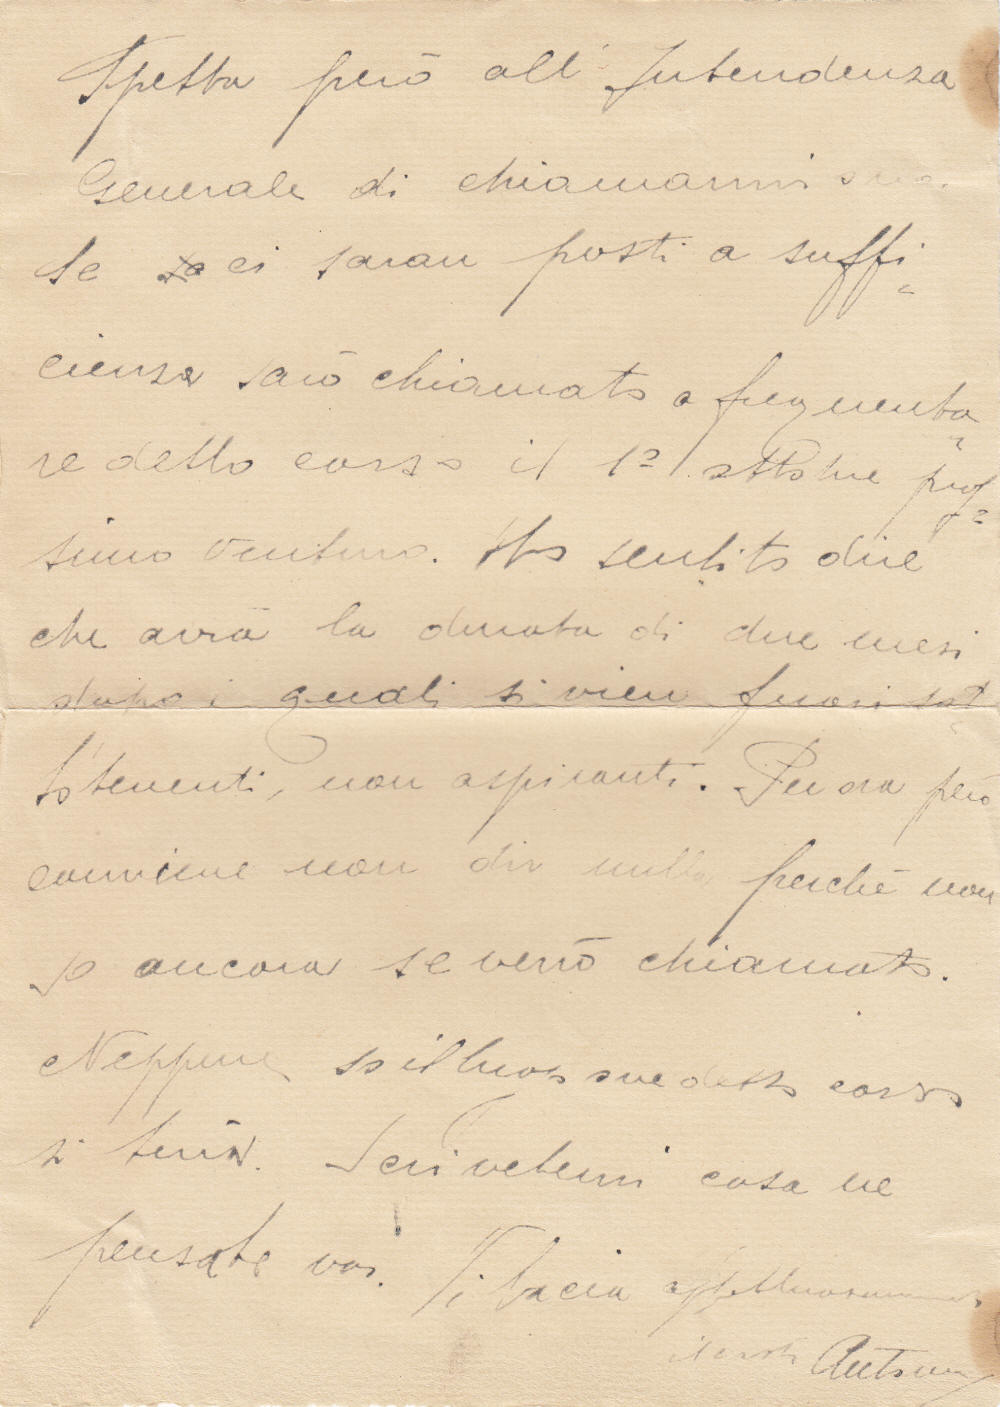 Spetta però all' Intendenza
Generale di chiamarmi
Se ci saran posti a suffi=
cienza sarò chiamato a frequenta=
re detto corso il 1º ottobre pros=
simo venturo. Ho sentito dire
che avrà la durata di due mesi
dopo i quali si vien fuori sot=
totenenti, non aspiranti. Per ora però
conviene non dir nulla perchè non
so ancora se verrò chiamato.
Neppure so il luogo ove detto corso
si terrà. Scrivetemi cosa ne
pensate voi. Vi bacia affettuosamente
il vostro